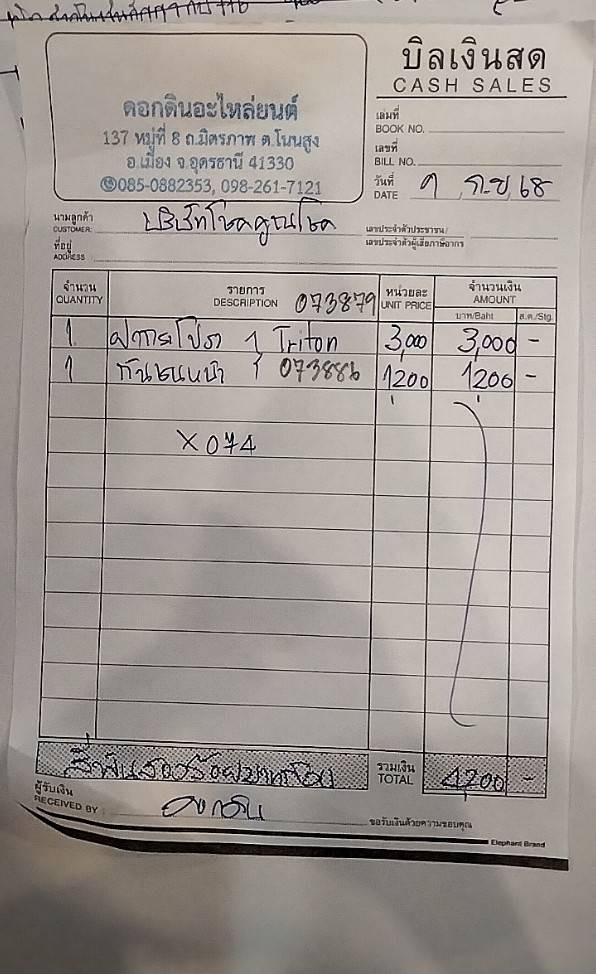 บิลเงินสด
CASH SALES
ดอกดินอะไหล่ยนต์
137 หมู่ที่ 8 ถ.มิตรภาพ ต.โนนสูง
อ.เมือง จ.อุดรธานี 41330
085-0882353, 098-261-7121
เล่มที่
BOOK NO.
เลขที่
BILL NO.
วันที่
DATE ๆ ก.ย. 68
นามลูกค้า
CUSTOMER: บริษัทโชคคูณโชค
เลขประจำตัวประชาชน/
เลขประจำตัวผู้เสียภาษีอากร
ที่อยู่
ADDRESS
จำนวน รายการ หน่วยละ จำนวนเงิน
QUANTITY DESCRIPTION 073879 UNIT PRICE AMOUNT
บาท/Baht ส.ต./Stg.
1 ฝากระโปรง Triton 3,000 3,000 -
1 กันชนหน้า 073886 1200 1200 -
X 074
สี่พันสองร้อยบาทถ้วน รวมเงิน
TOTAL 4,200 -
ผู้รับเงิน
RECEIVED BY
ขอรับเงินด้วยความขอบคุณ
Elephant Brand